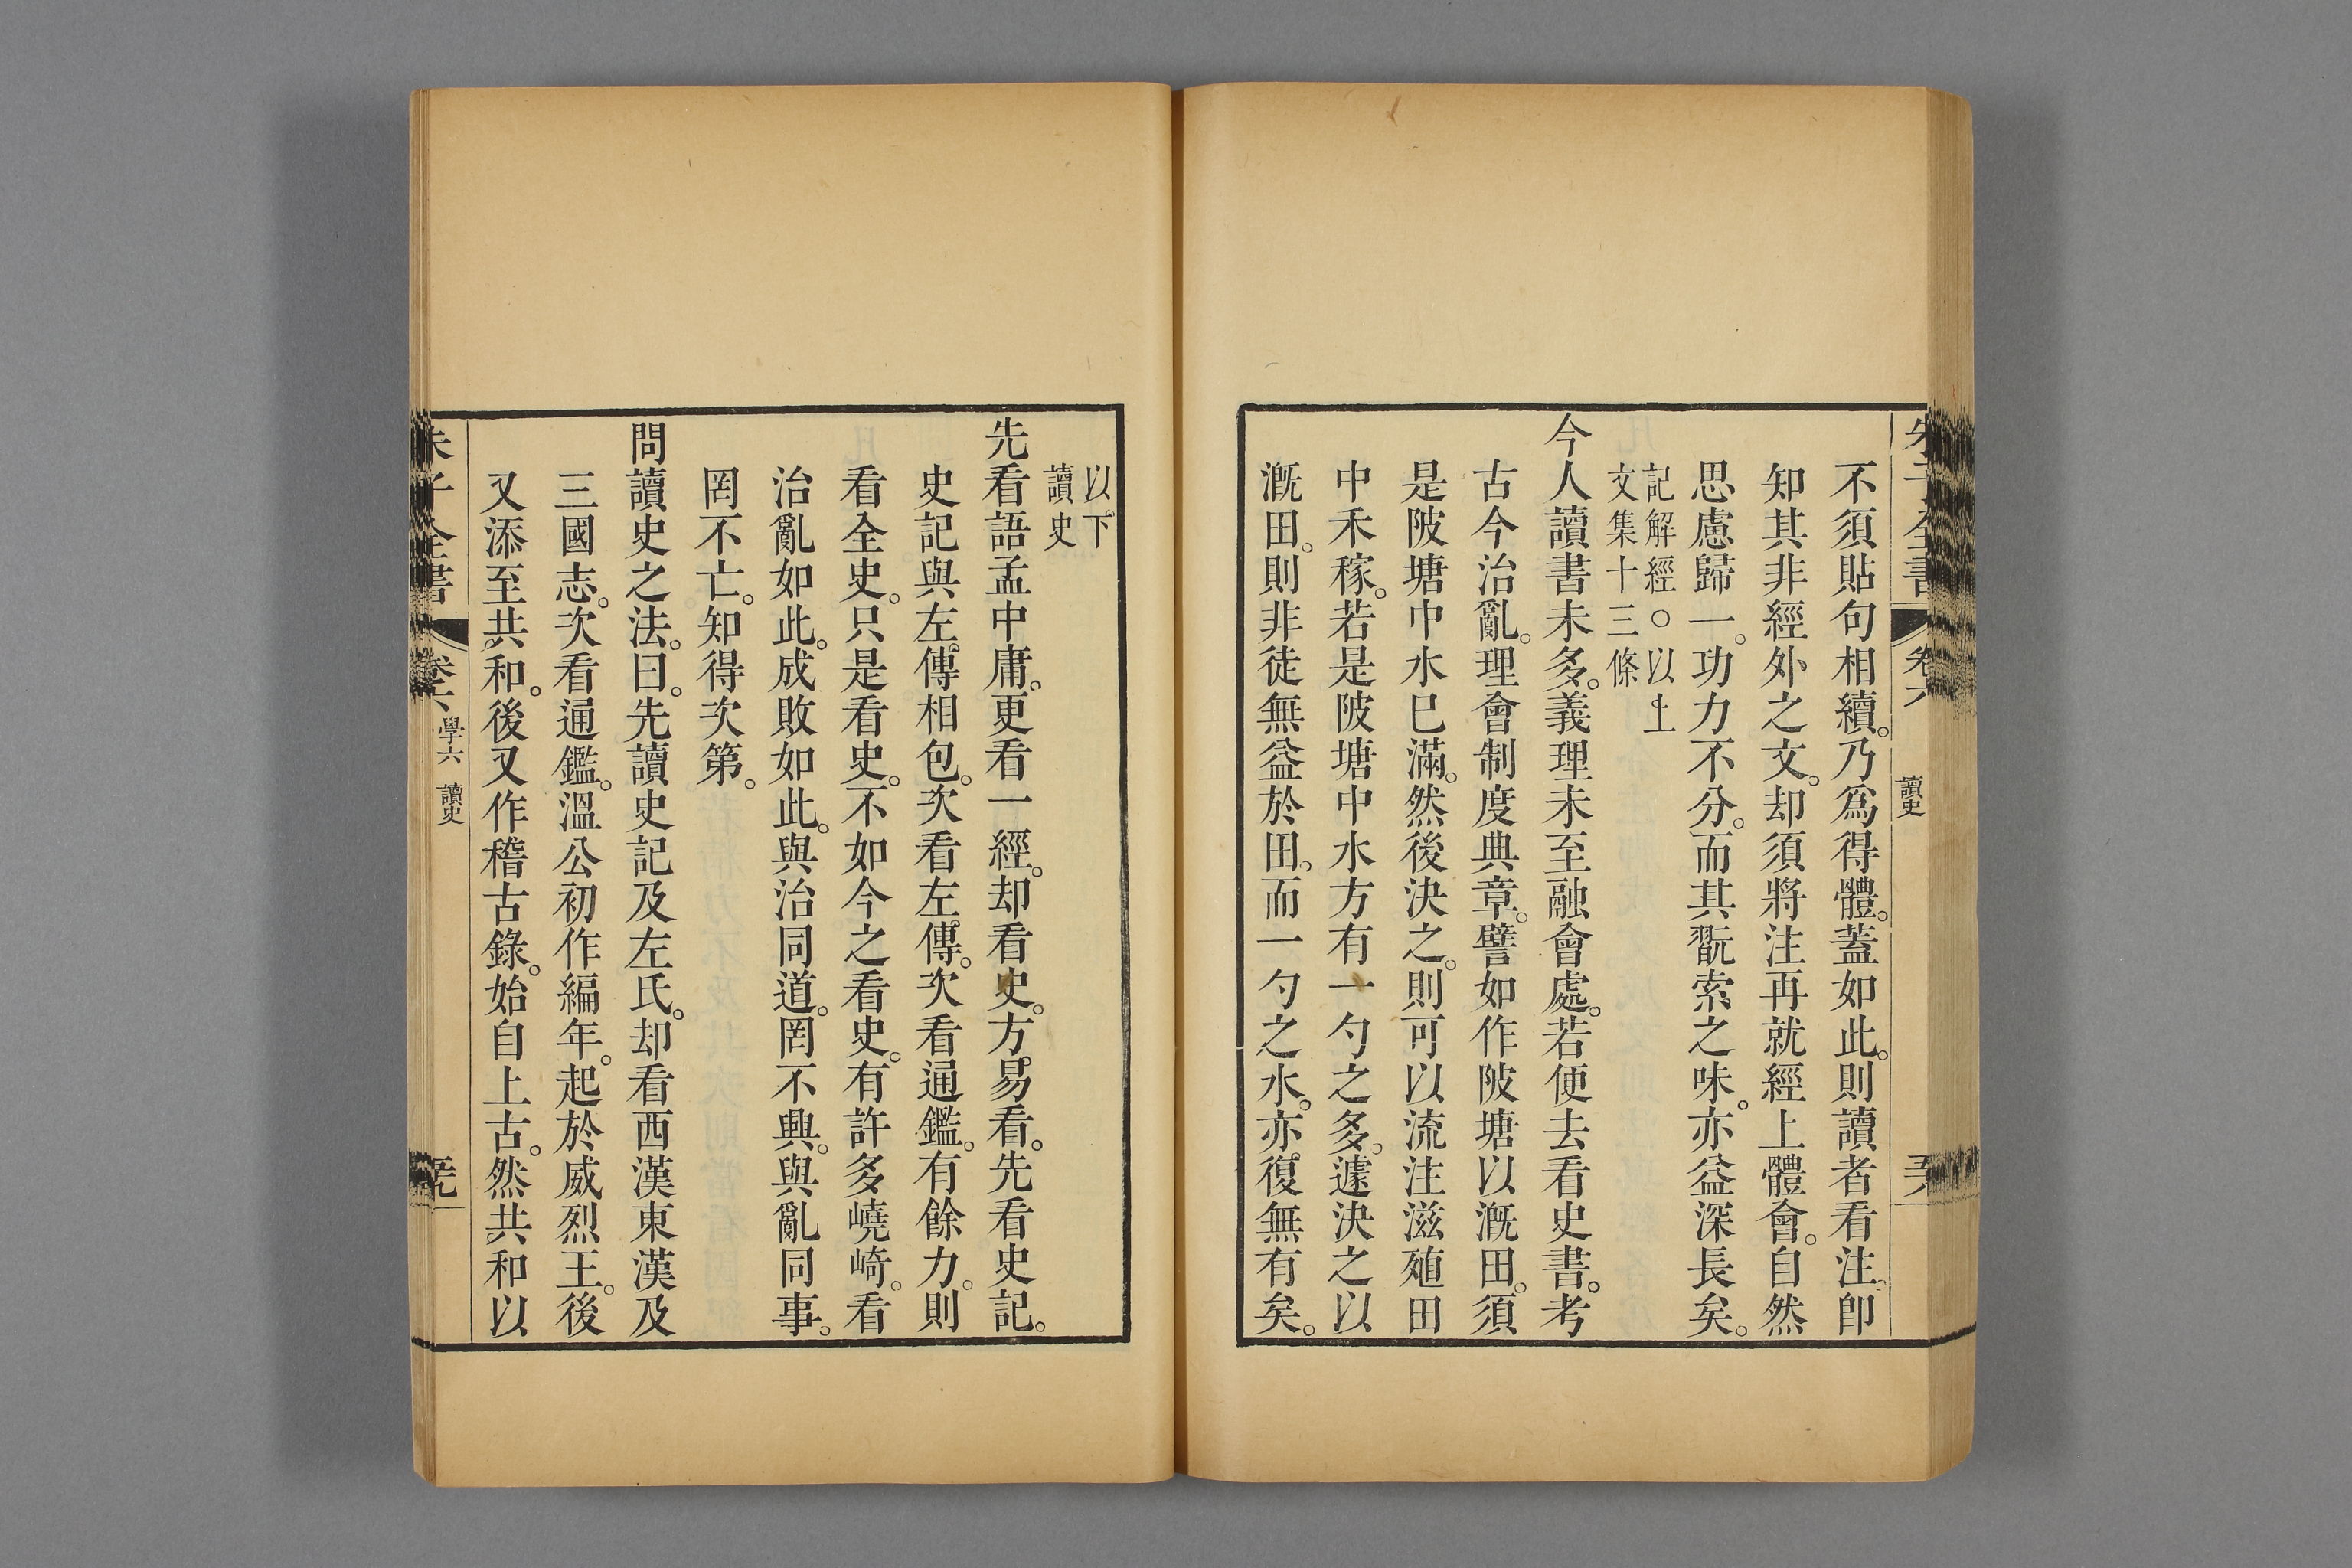 朱子全書
卷六
讀史
不須貼句相續。乃爲得體。蓋如此。則讀者看注。卽
知其非經外之文。却須將注再就經上體會。自然
思慮歸一。功力不分。而其翫索之味。亦益深長矣。
記解經○以上
文集十三條
今人讀書未多。義理未至融會處。若便去看史書。考
古今治亂。理會制度典章。譬如作陂塘以漑田。須
是陂塘中水已滿。然後決之。則可以流注滋殖田
中禾稼。若是陂塘中水方有一勺之多。遽決之以
漑田。則非徒無益於田。而一勺之水。亦復無有矣。
以下
讀史
先看語孟中庸。更看一經。却看史。方易看。先看史記。
史記與左傳相包。次看左傳。次看通鑑。有餘力。則
看全史。只是看史。不如今之看史。有許多嶢崎。看
治亂如此。成敗如此。與治同道。罔不興。與亂同事。
罔不亡。知得次第。
問讀史之法。曰。先讀史記及左氏。却看西漢東漢及
三國志。次看通鑑。溫公初作編年。起於威烈王。後
又添至共和。後又作稽古錄。始自上古。然共和以
朱子全書
卷六
學六
讀史